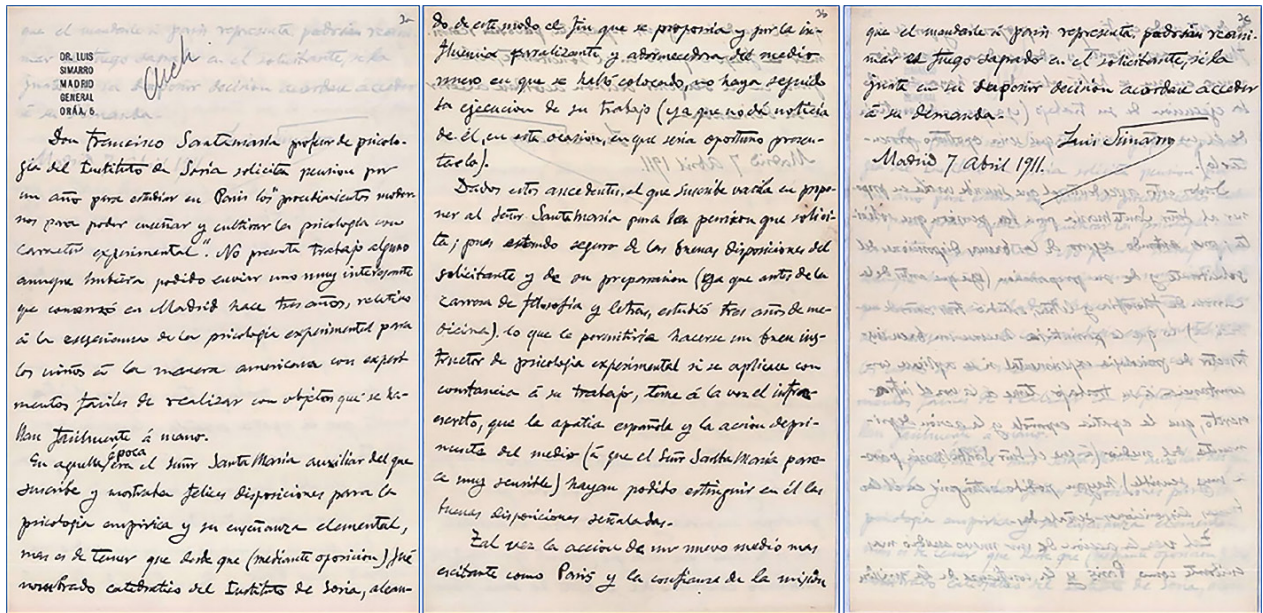 2a
DR. LUIS
SIMARRO
MADRID
GENERAL
ORÁA, 5
Arch
Don Francisco Santamaria profesor de psicolo-
gía del Instituto de Soria solicita pension por
un año para estudiar en Paris los "procedimientos moder-
nos para poder enseñar y cultivar la psicología con
carracter experimental". No presenta trabajo alguno
aunque hubiera podido enviar uno muy interesante
que comenzó en Madrid hace tres años, relativo
á la enseñanza de la psicología experimental para
los niños á la manera americana con experi
mentos fáciles de realizar con objetos que se ha-
llan facilmente á mano.
En aquella época era el Señor Santa Maria auxiliar del que
suscribe y mostraba felices disposiciones para la
psicología empírica y su enseñanza elemental,
mas es de temer que desde que (mediante oposicion) fué
nombrado catedratico del Instituto de Soria, alcan-
2b
do de este modo el fin que se proponia y por la in-
fluencia paralizante y adormecedora del medio
nuevo en que se halló colocado, no haya seguido
la ejecucion de su trabajo (ya que no dá noticia
de él, en esta ocasion, en que seria oportuno presen-
tarlo).
Dados estos ancedentes, el que suscribe vacila en propo-
ner al Señor Santa Maria para la pension que solici-
ta; pues estando seguro de las buenas disposiciones del
solicitante y de su preparacion (ya que antes de la
carrera de filosofía y letras, estudió tres años de me-
dicina). lo que le permitiria hacerse un buen ins-
tructor de psicologia experimental si se aplicase con
constancia á su trabajo, teme á la vez el infra-
escrito, que la apatia española y la accion depri-
mente del medio (á que el Señor Santa Maria pare-
ce muy sensible) hayan podido estinguir en él las
buenas disposiciones señaladas.
Tal vez la accion de un nuevo medio mas
escitante como Paris y la confianza de la mision
2c
que el mandarle á paris representa podrian reani-
mar el fuego sagrado en el solicitante, si la
Junta en su superior decision acordase acceder
á su demanda.
Luis Simarro
Madrid 7 Abril 1911.